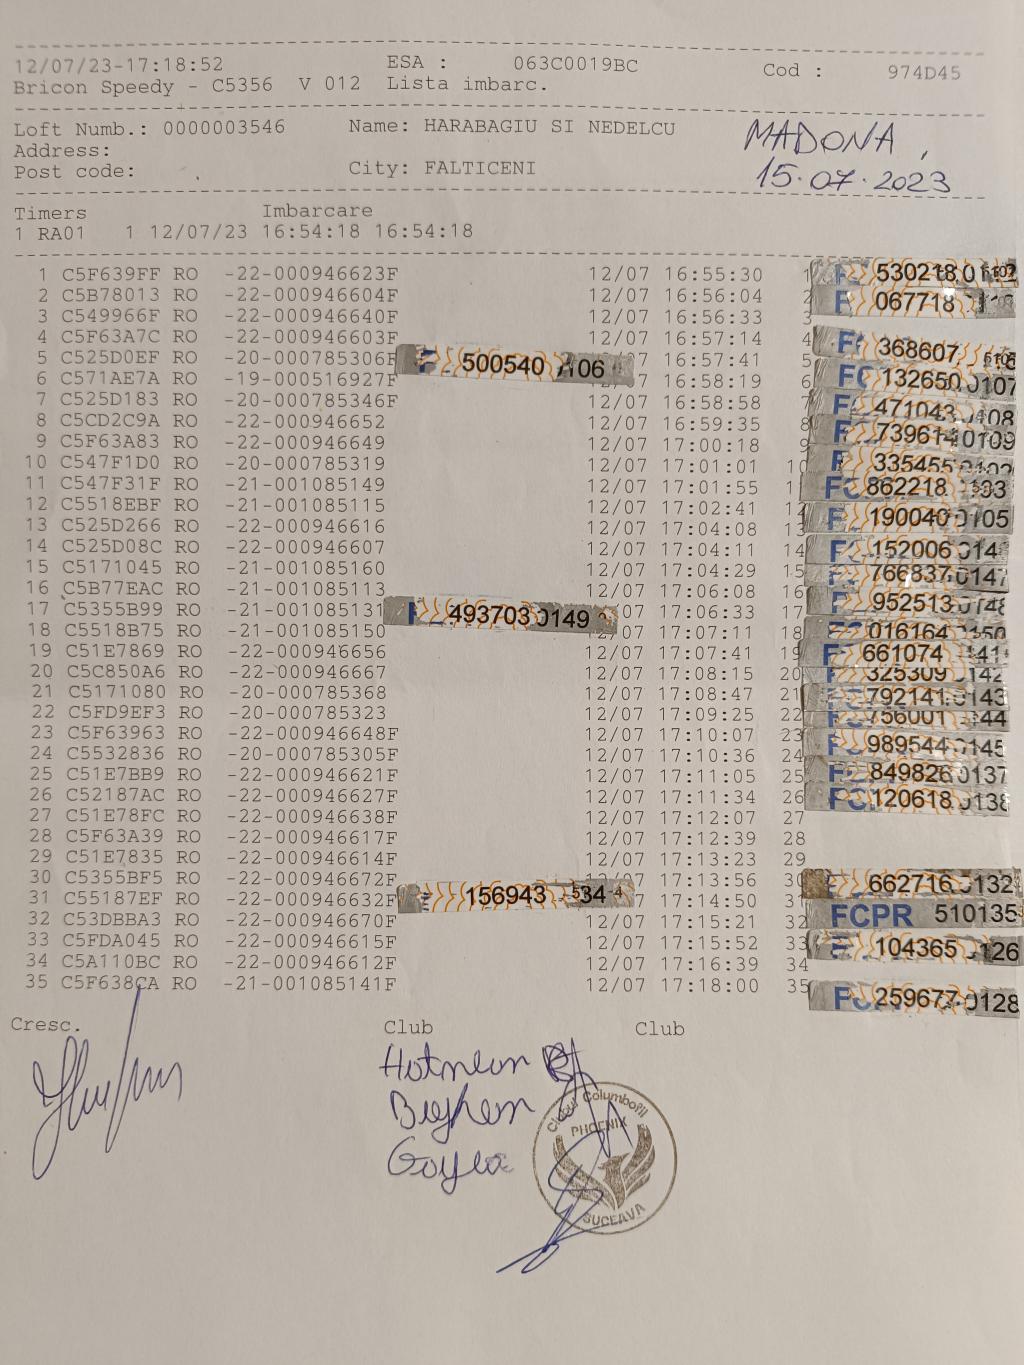 12/07/23-17:18:52 ESA : 063C0019BC Cod : 974D45
Bricon Speedy - C5356 V 012 Lista imbarc.
Loft Numb.: 0000003546 Name: HARABAGIU SI NEDELCU MADONA,
Address:
Post code: City: FALTICENI 15.07.2023
Timers Imbarcare
1 RA01 1 12/07/23 16:54:18 16:54:18
1 C5F639FF RO -22-000946623F 12/07 16:55:30 1 530218
2 C5B78013 RO -22-000946604F 12/07 16:56:04 2 067718
3 C549966F RO -22-000946640F 12/07 16:56:33 3
4 C5F63A7C RO -22-000946603F 12/07 16:57:14 4 368607
5 C525D0EF RO -20-000785306F 500540 12/07 16:57:41 5
6 C571AE7A RO -19-000516927F 16:58:19 6 132650 0107
7 C525D183 RO -20-000785346F 12/07 16:58:58 7 471043
8 C5CD2C9A RO -22-000946652 12/07 16:59:35 8 739614 0109
9 C5F63A83 RO -22-000946649 12/07 17:00:18 9 335455
10 C547F1D0 RO -20-000785319 12/07 17:01:01 10
11 C547F31F RO -21-001085149 12/07 17:01:55 862218
12 C5518EBF RO -21-001085115 12/07 17:02:41 12 190040 0105
13 C525D266 RO -22-000946616 12/07 17:04:08 13
14 C525D08C RO -22-000946607 12/07 17:04:11 14 152006
15 C5171045 RO -21-001085160 12/07 17:04:29 15 766837 0147
16 C5B77EAC RO -21-001085113 12/07 17:06:08 16 952513 0148
17 C5355B99 RO -21-001085131 493703 0149 17:06:33 17
18 C5518B75 RO -21-001085150 17:07:11 18 016164 0150
19 C51E7869 RO -22-000946656 12/07 17:07:41 19 661074
20 C5C850A6 RO -22-000946667 12/07 17:08:15 20 325309 0142
21 C5171080 RO -20-000785368 12/07 17:08:47 21 792141 0143
22 C5FD9EF3 RO -20-000785323 12/07 17:09:25 22 756001
23 C5F63963 RO -22-000946648F 12/07 17:10:07 23 989544 0145
24 C5532836 RO -20-000785305F 12/07 17:10:36 24
25 C51E7BB9 RO -22-000946621F 12/07 17:11:05 25 849826 0137
26 C52187AC RO -22-000946627F 12/07 17:11:34 26 120618 0138
27 C51E78FC RO -22-000946638F 12/07 17:12:07 27
28 C5F63A39 RO -22-000946617F 12/07 17:12:39 28
29 C51E7835 RO -22-000946614F 12/07 17:13:23 29
30 C5355BF5 RO -22-000946672F 17:13:56 30 662716 0132
31 C55187EF RO -22-000946632F 156943 17:14:50 31
32 C53DBBA3 RO -22-000946670F 12/07 17:15:21 32 FCPR 510135
33 C5FDA045 RO -22-000946615F 12/07 17:15:52 33 104365
34 C5A110BC RO -22-000946612F 12/07 17:16:39 34
35 C5F638CA RO -21-001085141F 12/07 17:18:00 35 259677 0128
Cresc. Club Club
Clubul Columbofil
PHOENIX
SUCEAVA